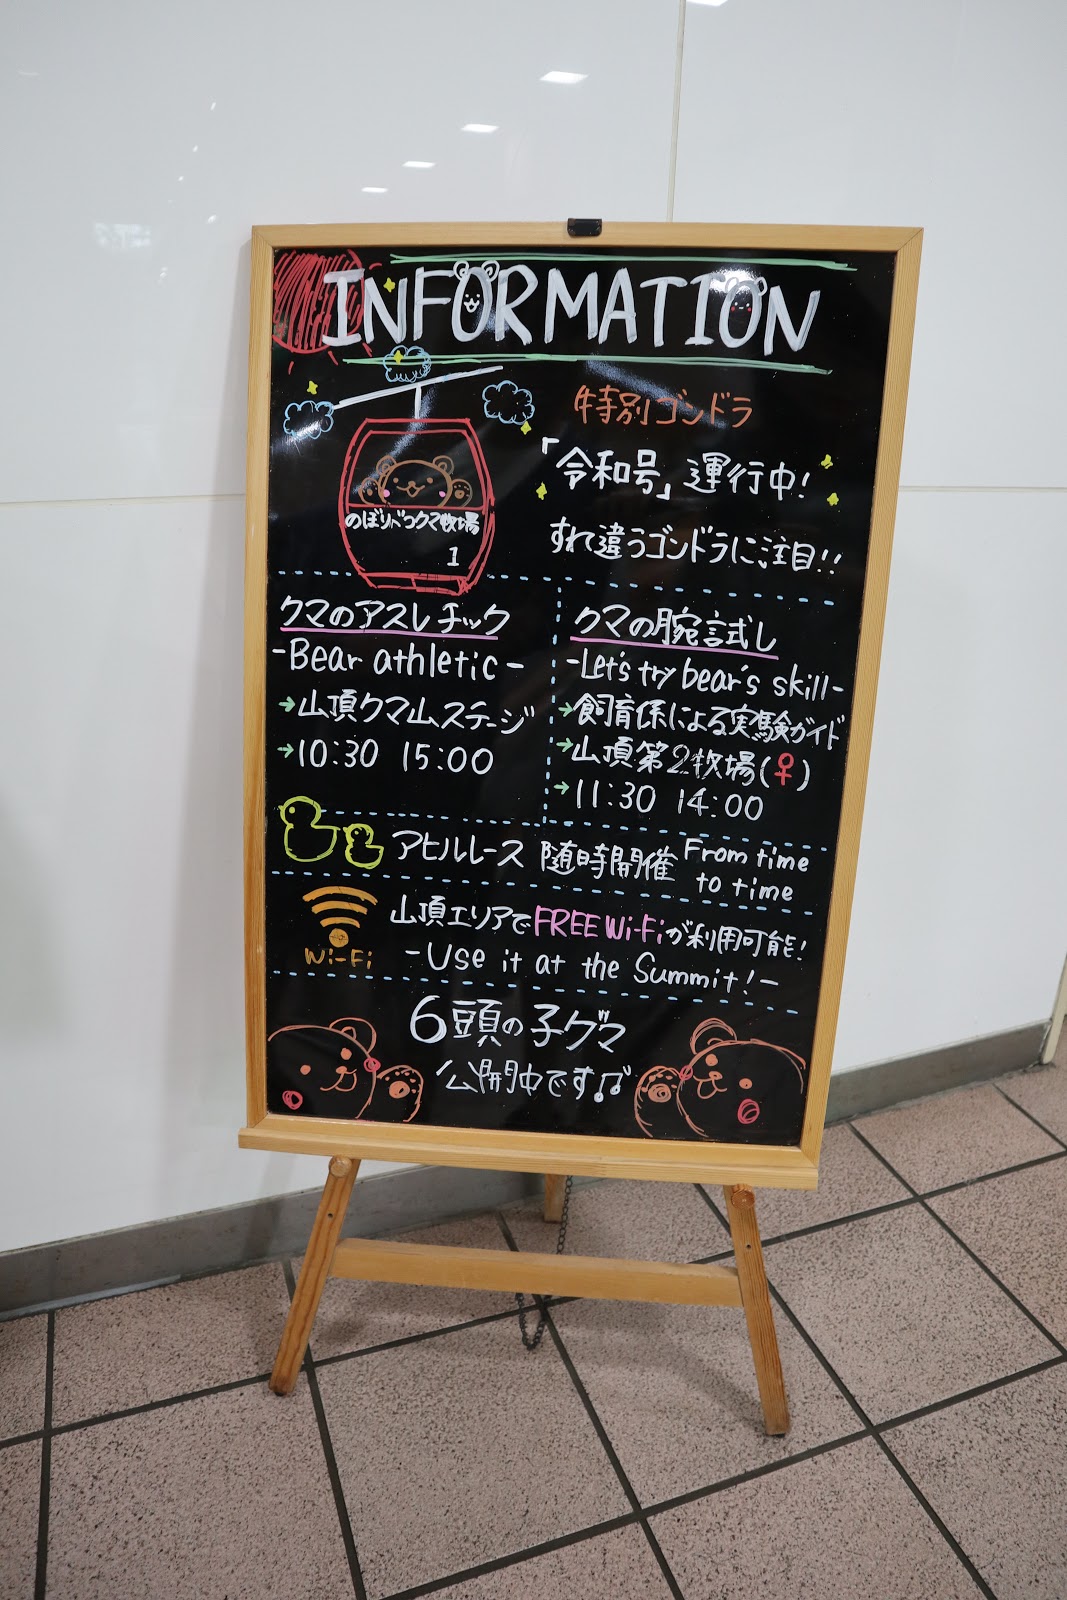 INFORMATION
特別ゴンドラ
「令和号」運行中!
すれ違うゴンドラに注目!!
のぼりべつクマ牧場
1
クマのアスレチック
-Bear athletic-
→山頂クマ山ステージ
→10:30 15:00
クマの腕試し
-Let's try bear's skill-
→飼育係による実験ガイド
→山頂第2牧場(♀)
→11:30 14:00
アヒルレース 随時開催 From time to time
Wi-Fi
山頂エリアでFREE Wi-Fiが利用可能!
-Use it at the Summit!-
6頭の子グマ
公開中です♫